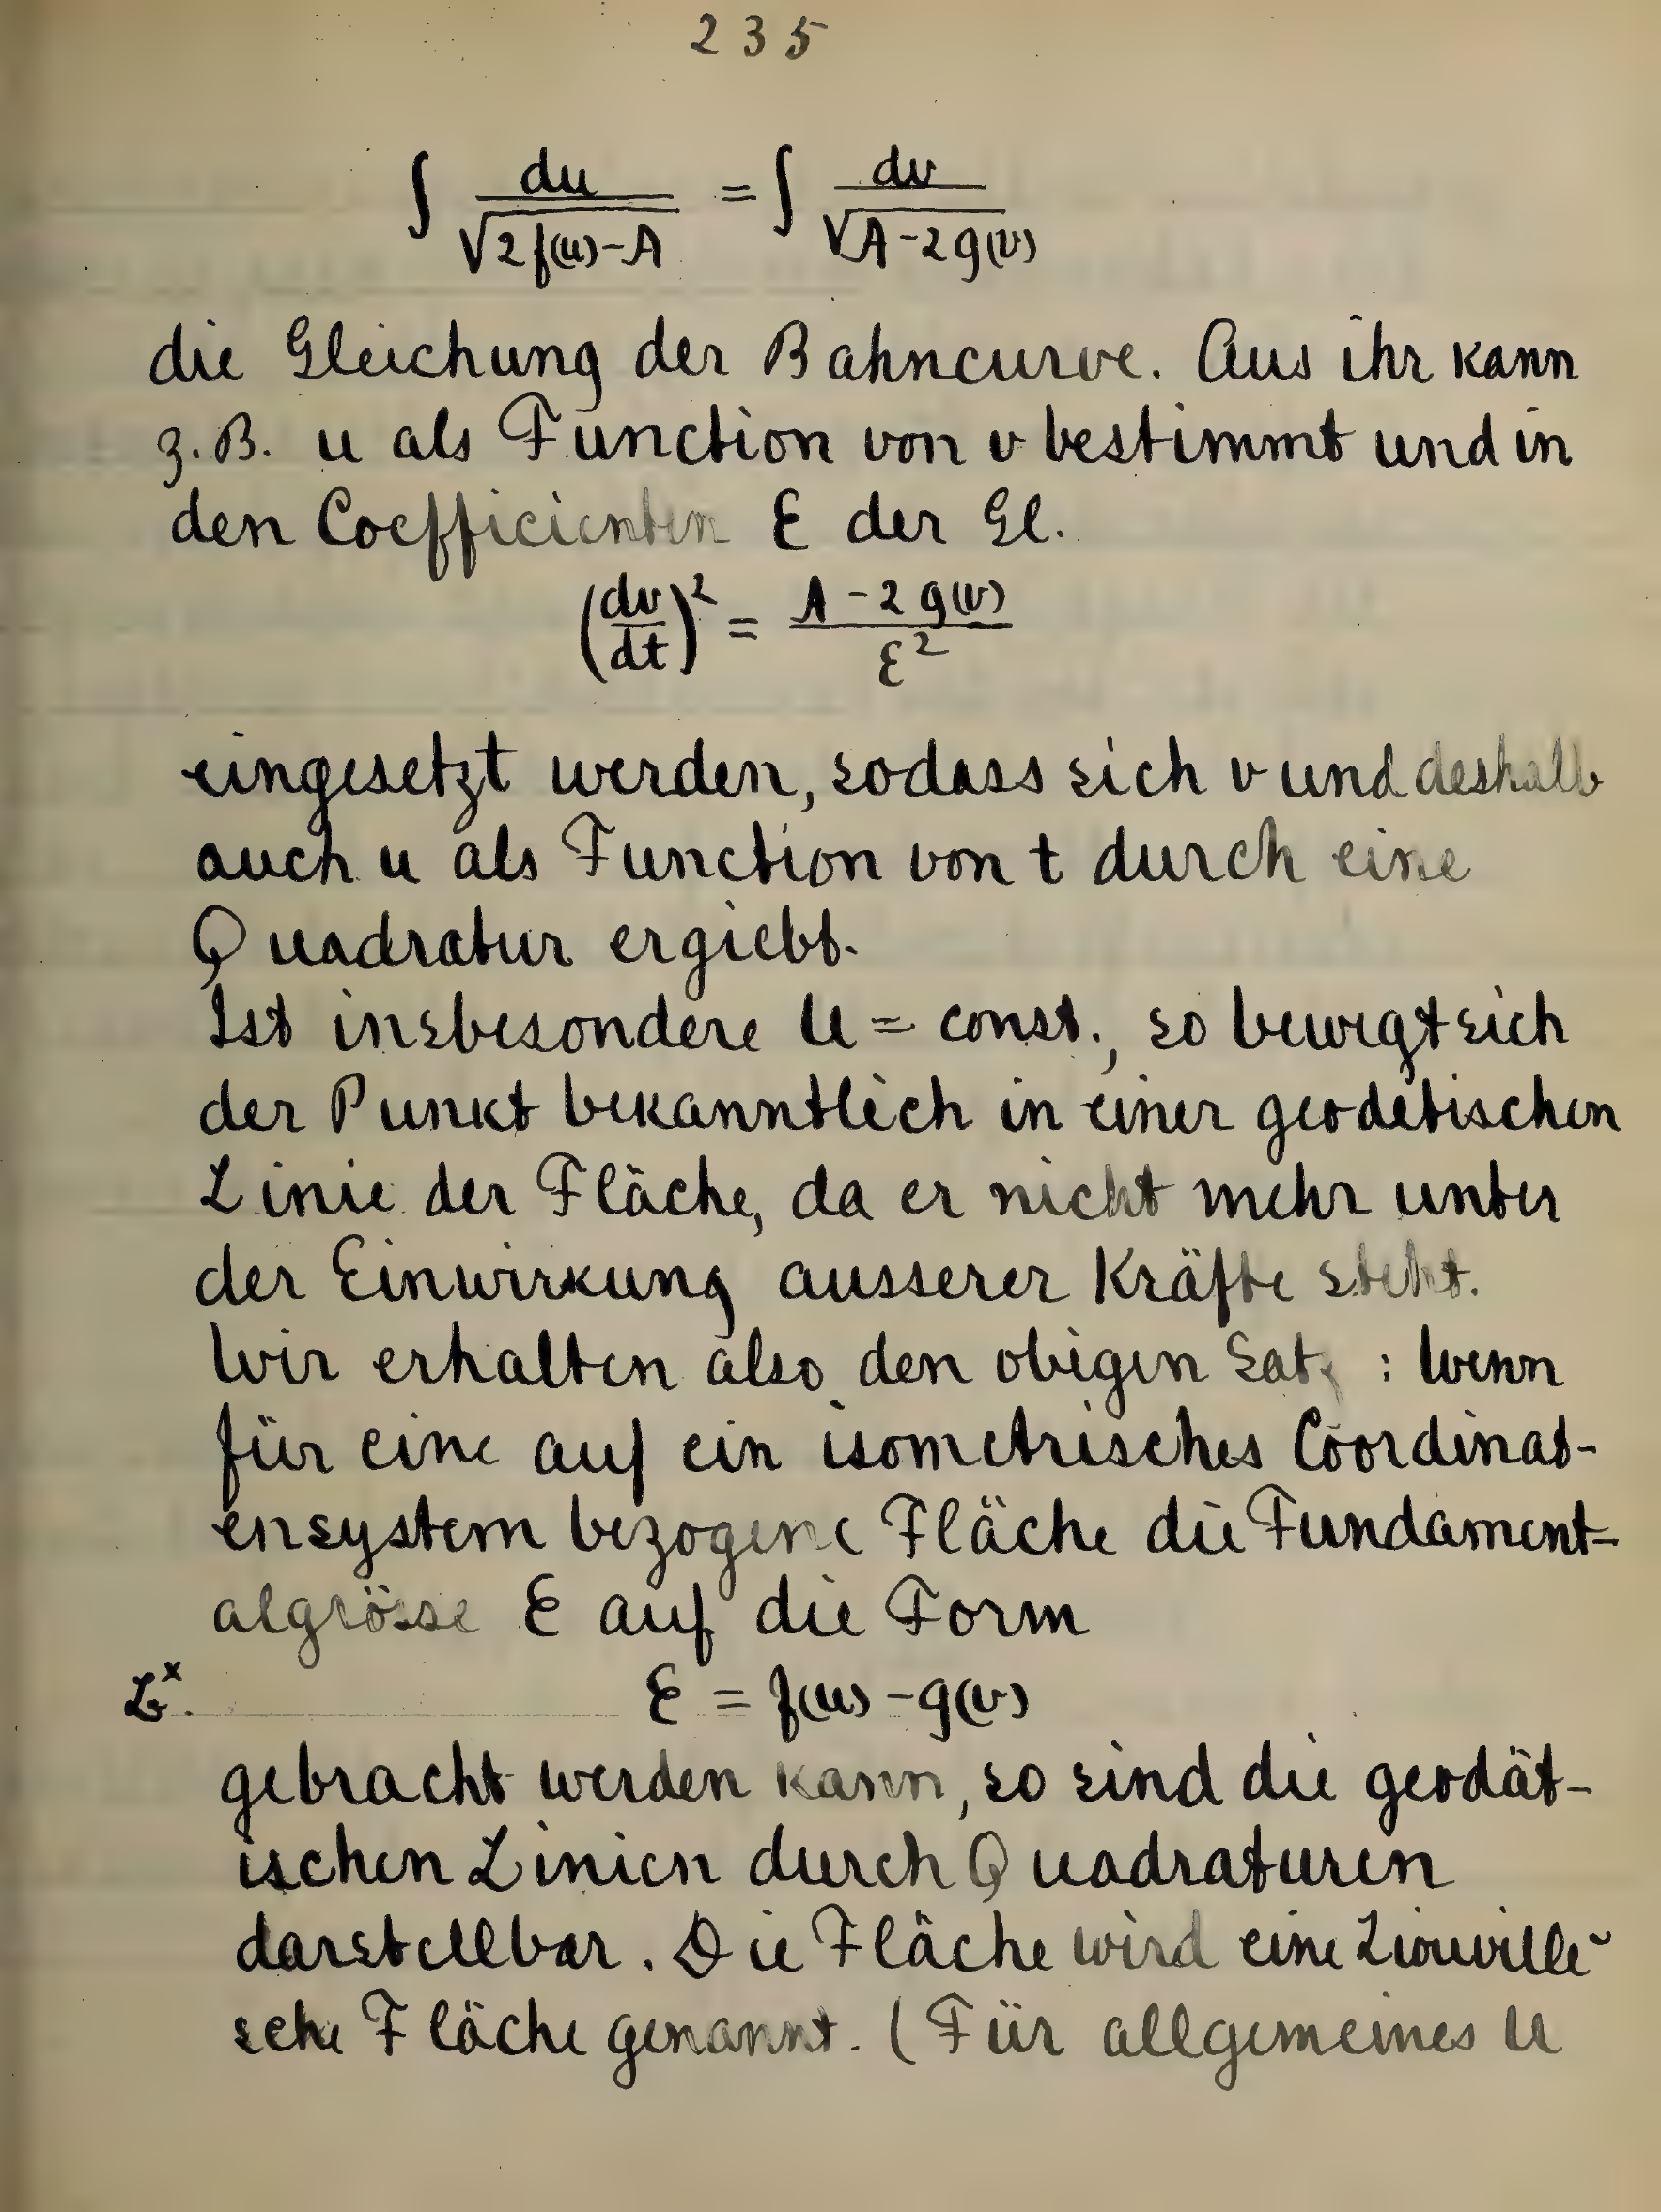 235
∫ du / √(2f(u)-A) = ∫ dv / √(A-2g(v))
die Gleichung der Bahncurve. Aus ihr kann
z.B. u als Function von v bestimmt und in
den Coefficienten E der Gl.
(dv/dt)² = (A-2g(v)) / E²
eingesetzt werden, sodass sich v und deshalb
auch u als Function von t durch eine
Quadratur ergiebt.
Ist insbesondere U = const., so bewegt sich
der Punkt bekanntlich in einer geodetischen
Linie der Fläche, da er nicht mehr unter
der Einwirkung ausserer Kräfte steht.
Wir erhalten also den obigen Satz: Wenn
für eine auf ein isometrisches Coordinat-
ensystem bezogene Fläche die Fundament-
algrösse E auf die Form
E = f(u) - g(v)
gebracht werden kann, so sind die geodät-
ischen Linien durch Quadraturen
darstellbar. Die Fläche wird eine Liouville-
sche Fläche genannt. (Für allgemeines U